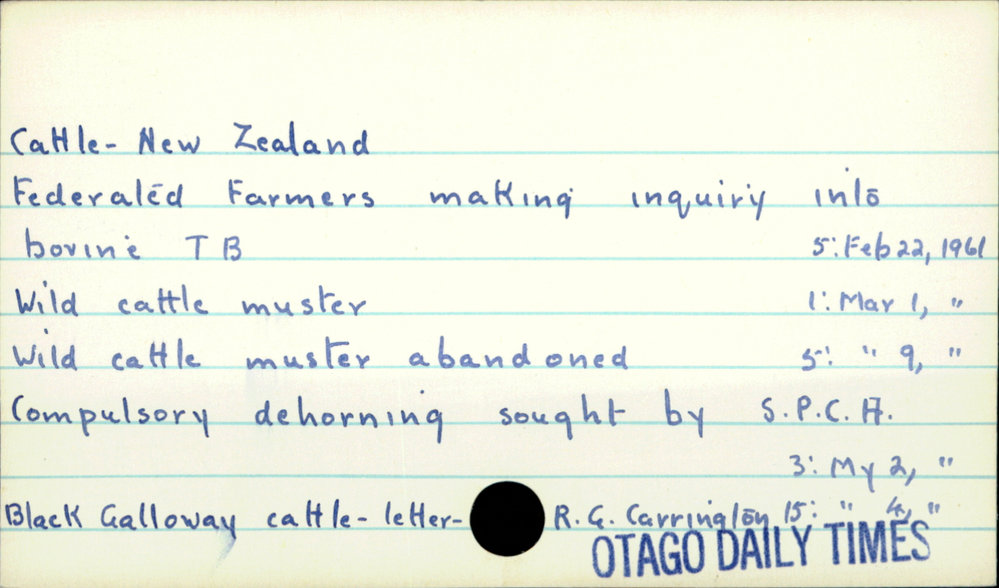 Cattle- New Zealand
Federated Farmers making inquiry into
bovine T B 5: Feb 22, 1961
Wild cattle muster 1: Mar 1, "
Wild cattle muster abandoned 5: " 9, "
Compulsory dehorning sought by S.P.C.A.
3: My 2, "
Black Galloway cattle- letter- R.G. Carrington 15: " 4, "
OTAGO DAILY TIMES